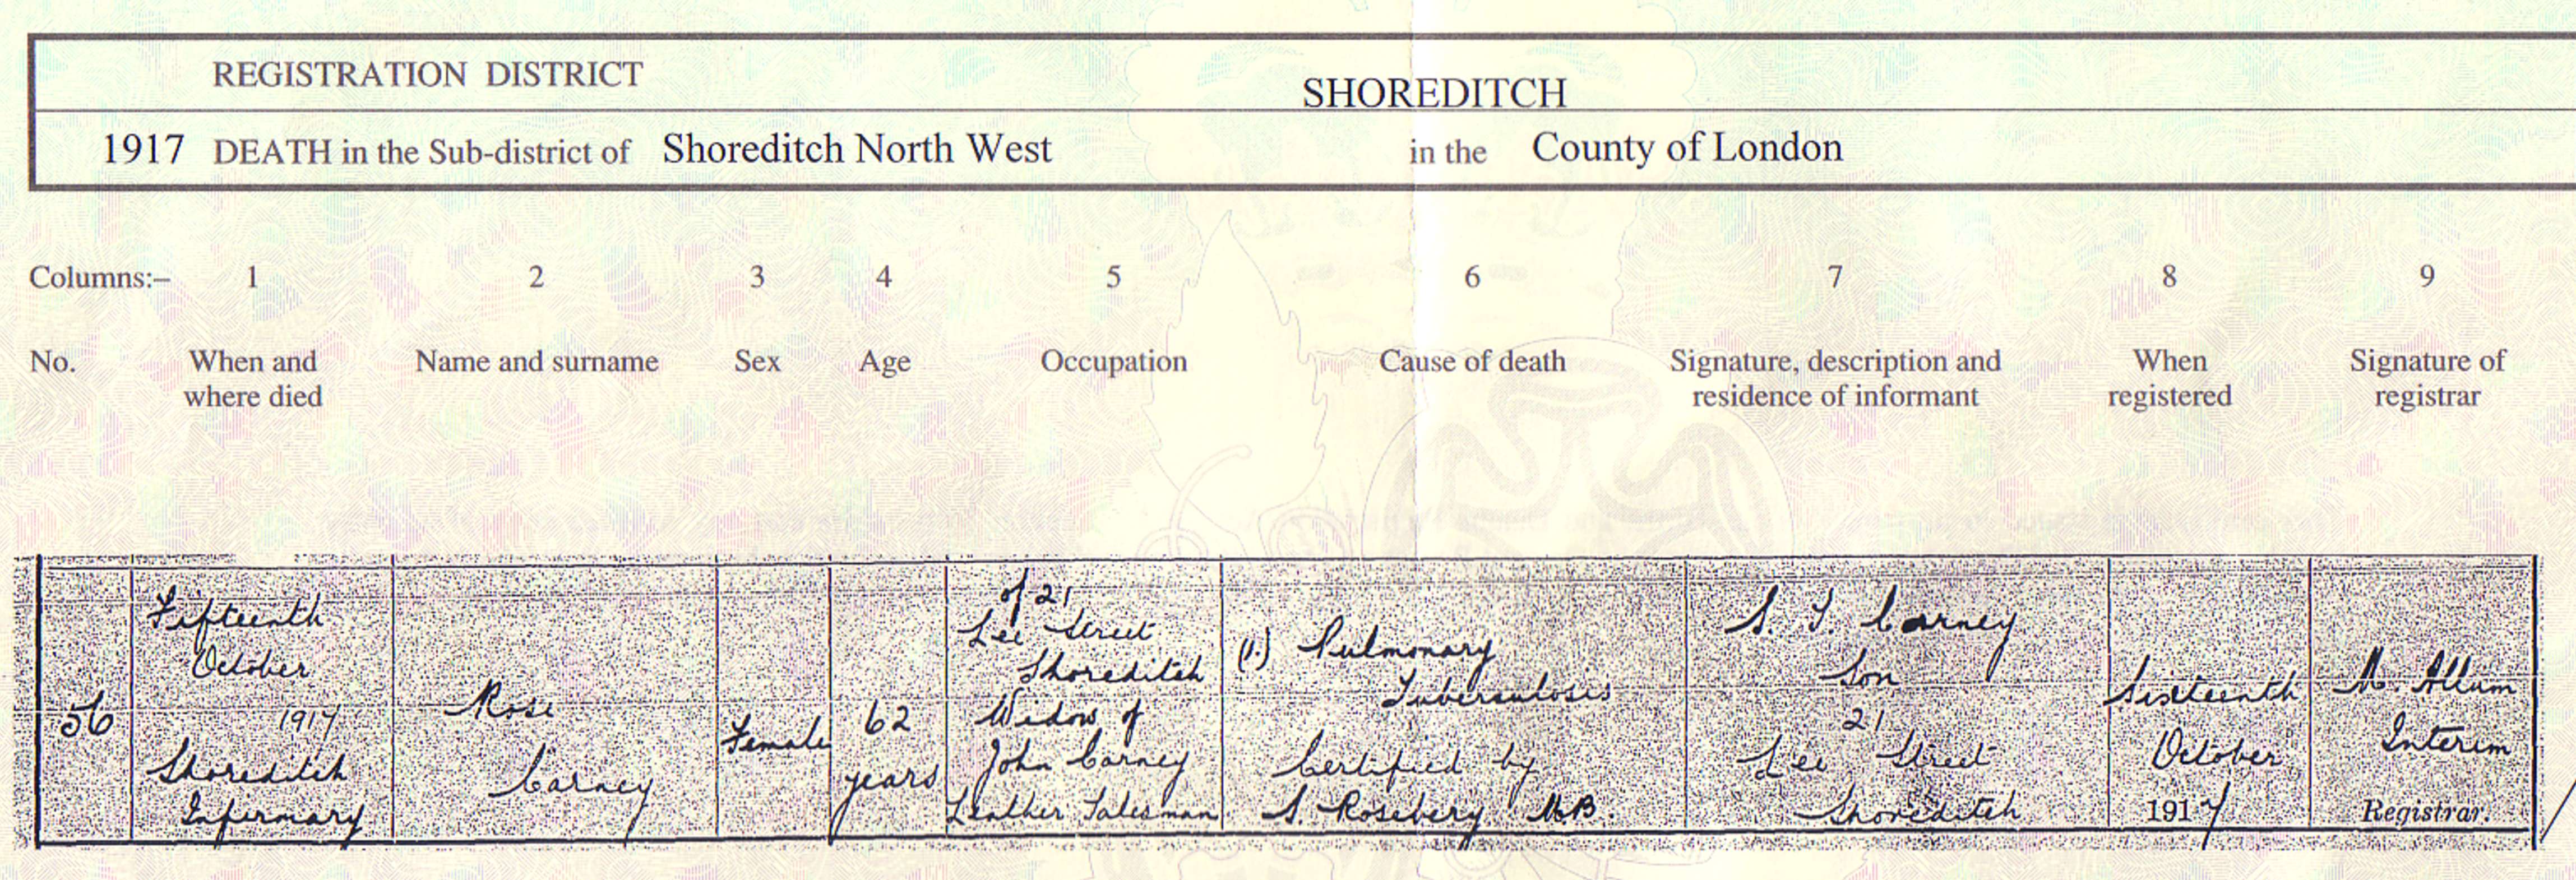 REGISTRATION DISTRICT SHOREDITCH
1917 DEATH in the Sub-district of Shoreditch North West in the County of London
Columns:– 1 2 3 4 5 6 7 8 9
No. When and where died Name and surname Sex Age Occupation Cause of death Signature, description and residence of informant When registered Signature of registrar
56
Fifteenth
October
1917
Shoreditch
Infirmary
Rose
Carney
Female
62
years
of 21
Lee Street
Shoreditch
Widow of
John Carney
Leather Salesman
(1.) Pulmonary
Tuberculosis
Certified by
S. Rosebery M.B.
S. J. Carney
Son
21
Lee Street
Shoreditch
Sixteenth
October
1917
M. Allum
Interim
Registrar.